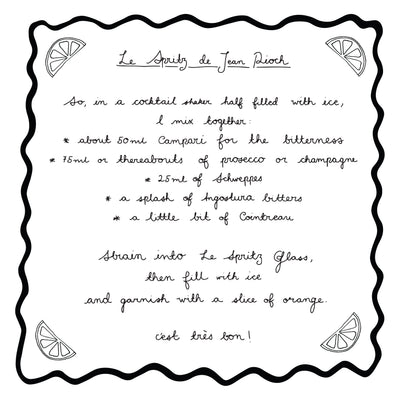 Le Spritz de Jean Pioch
So, in a cocktail shaker half filled with ice,
I mix together:
* about 50ml Campari for the bitterness
* 75ml or thereabouts of prosecco or champagne
* 25ml of Schweppes
* a splash of Angostura bitters
* a little bit of Cointreau
Strain into Le Spritz Glass,
then fill with ice
and garnish with a slice of orange.
c'est très bon!